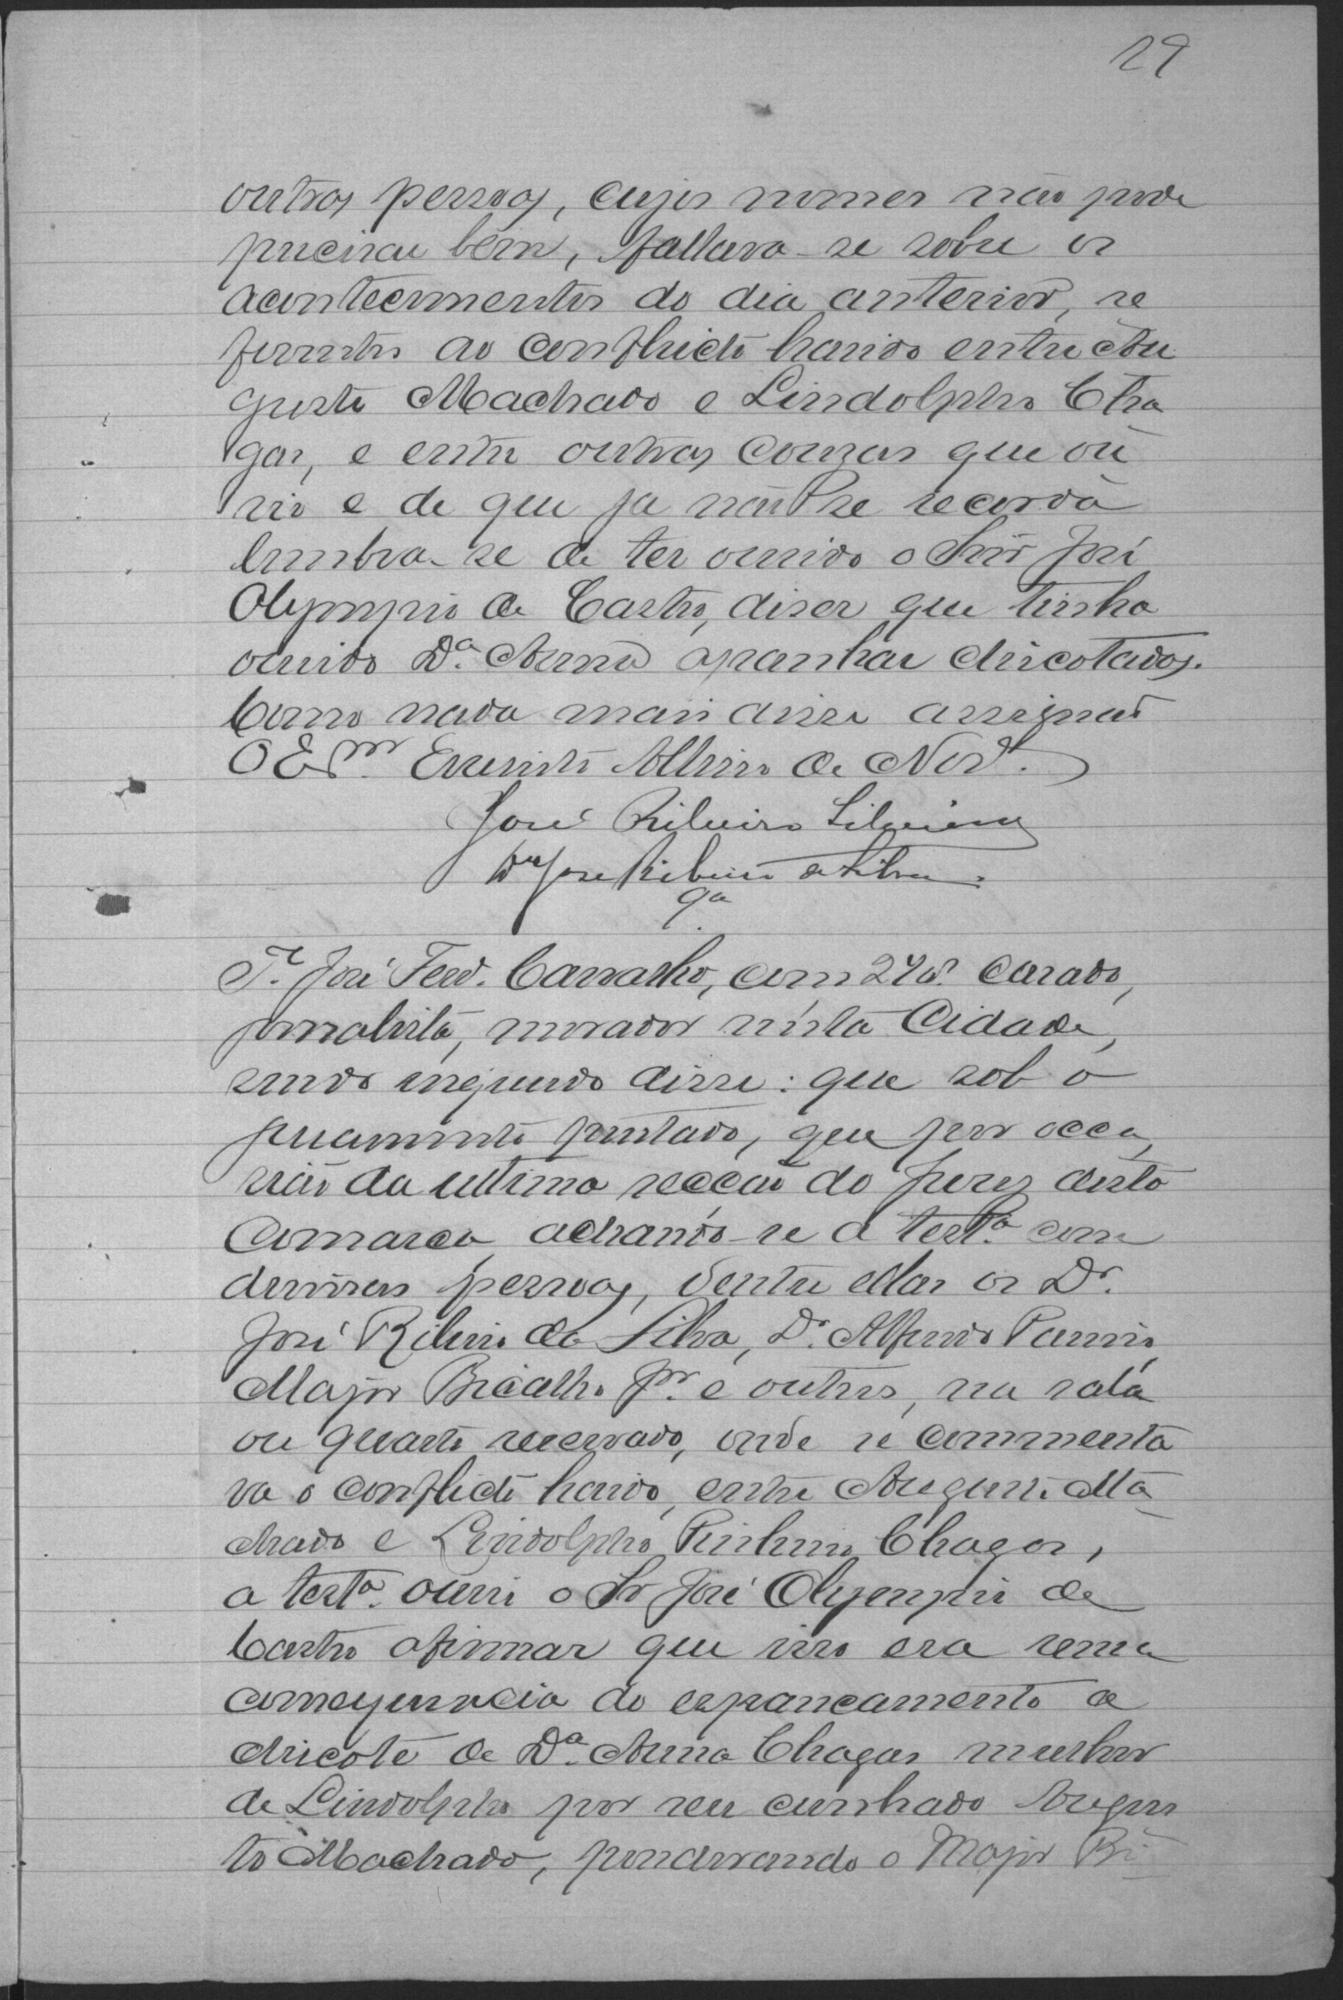 29
outras pessoas, cujos nomes não pode
precisar bem, fallava-se sobre os
acontecimentos do dia anterior, re
ferentes ao conflicto havido entre Au
gusto Machado e Lindolpho Cha
gas, e entre outras cousas que ou
vio e de que ja não se recorda
lembra-se de ter ouvido o Snr José
Olympio de Castro, diser que tinha
ouvido Dª. Anna apanhar chicotadas.
Como nada mais disse assignou
O Esm. Evaristo Albino de
José Ribeiro
Dr José Ribeiro da Silva
9a
Te. José Ferr. Carvalho, com 24 as. casado,
jornalista, morador nésta Cidade,
sendo inquerido disse: que sob o
juramento prestado, que por occa
sião da ultima secção do Jury desta
Comarca, achando-se a testa. com
diversas pessoas, dentre ellas os Dr.
José Ribeiro da Silva, Dr. Alfredo
Major Bicalho Jr. e outros, na sala
ou quarto reservado, onde se commenta
va o conflicto havido, entre Augusto Ma
chado e Lindolpho Pinheiro Chagas,
a testa. ouvi o Sr José Olympio de
Castro afirmar que isso era uma
consequencia do espancamento a
chicote de Dª. Anna Chagas mulher
de Lindolpho por seu cunhado Augus
to Machado, ponderando o Major Bi